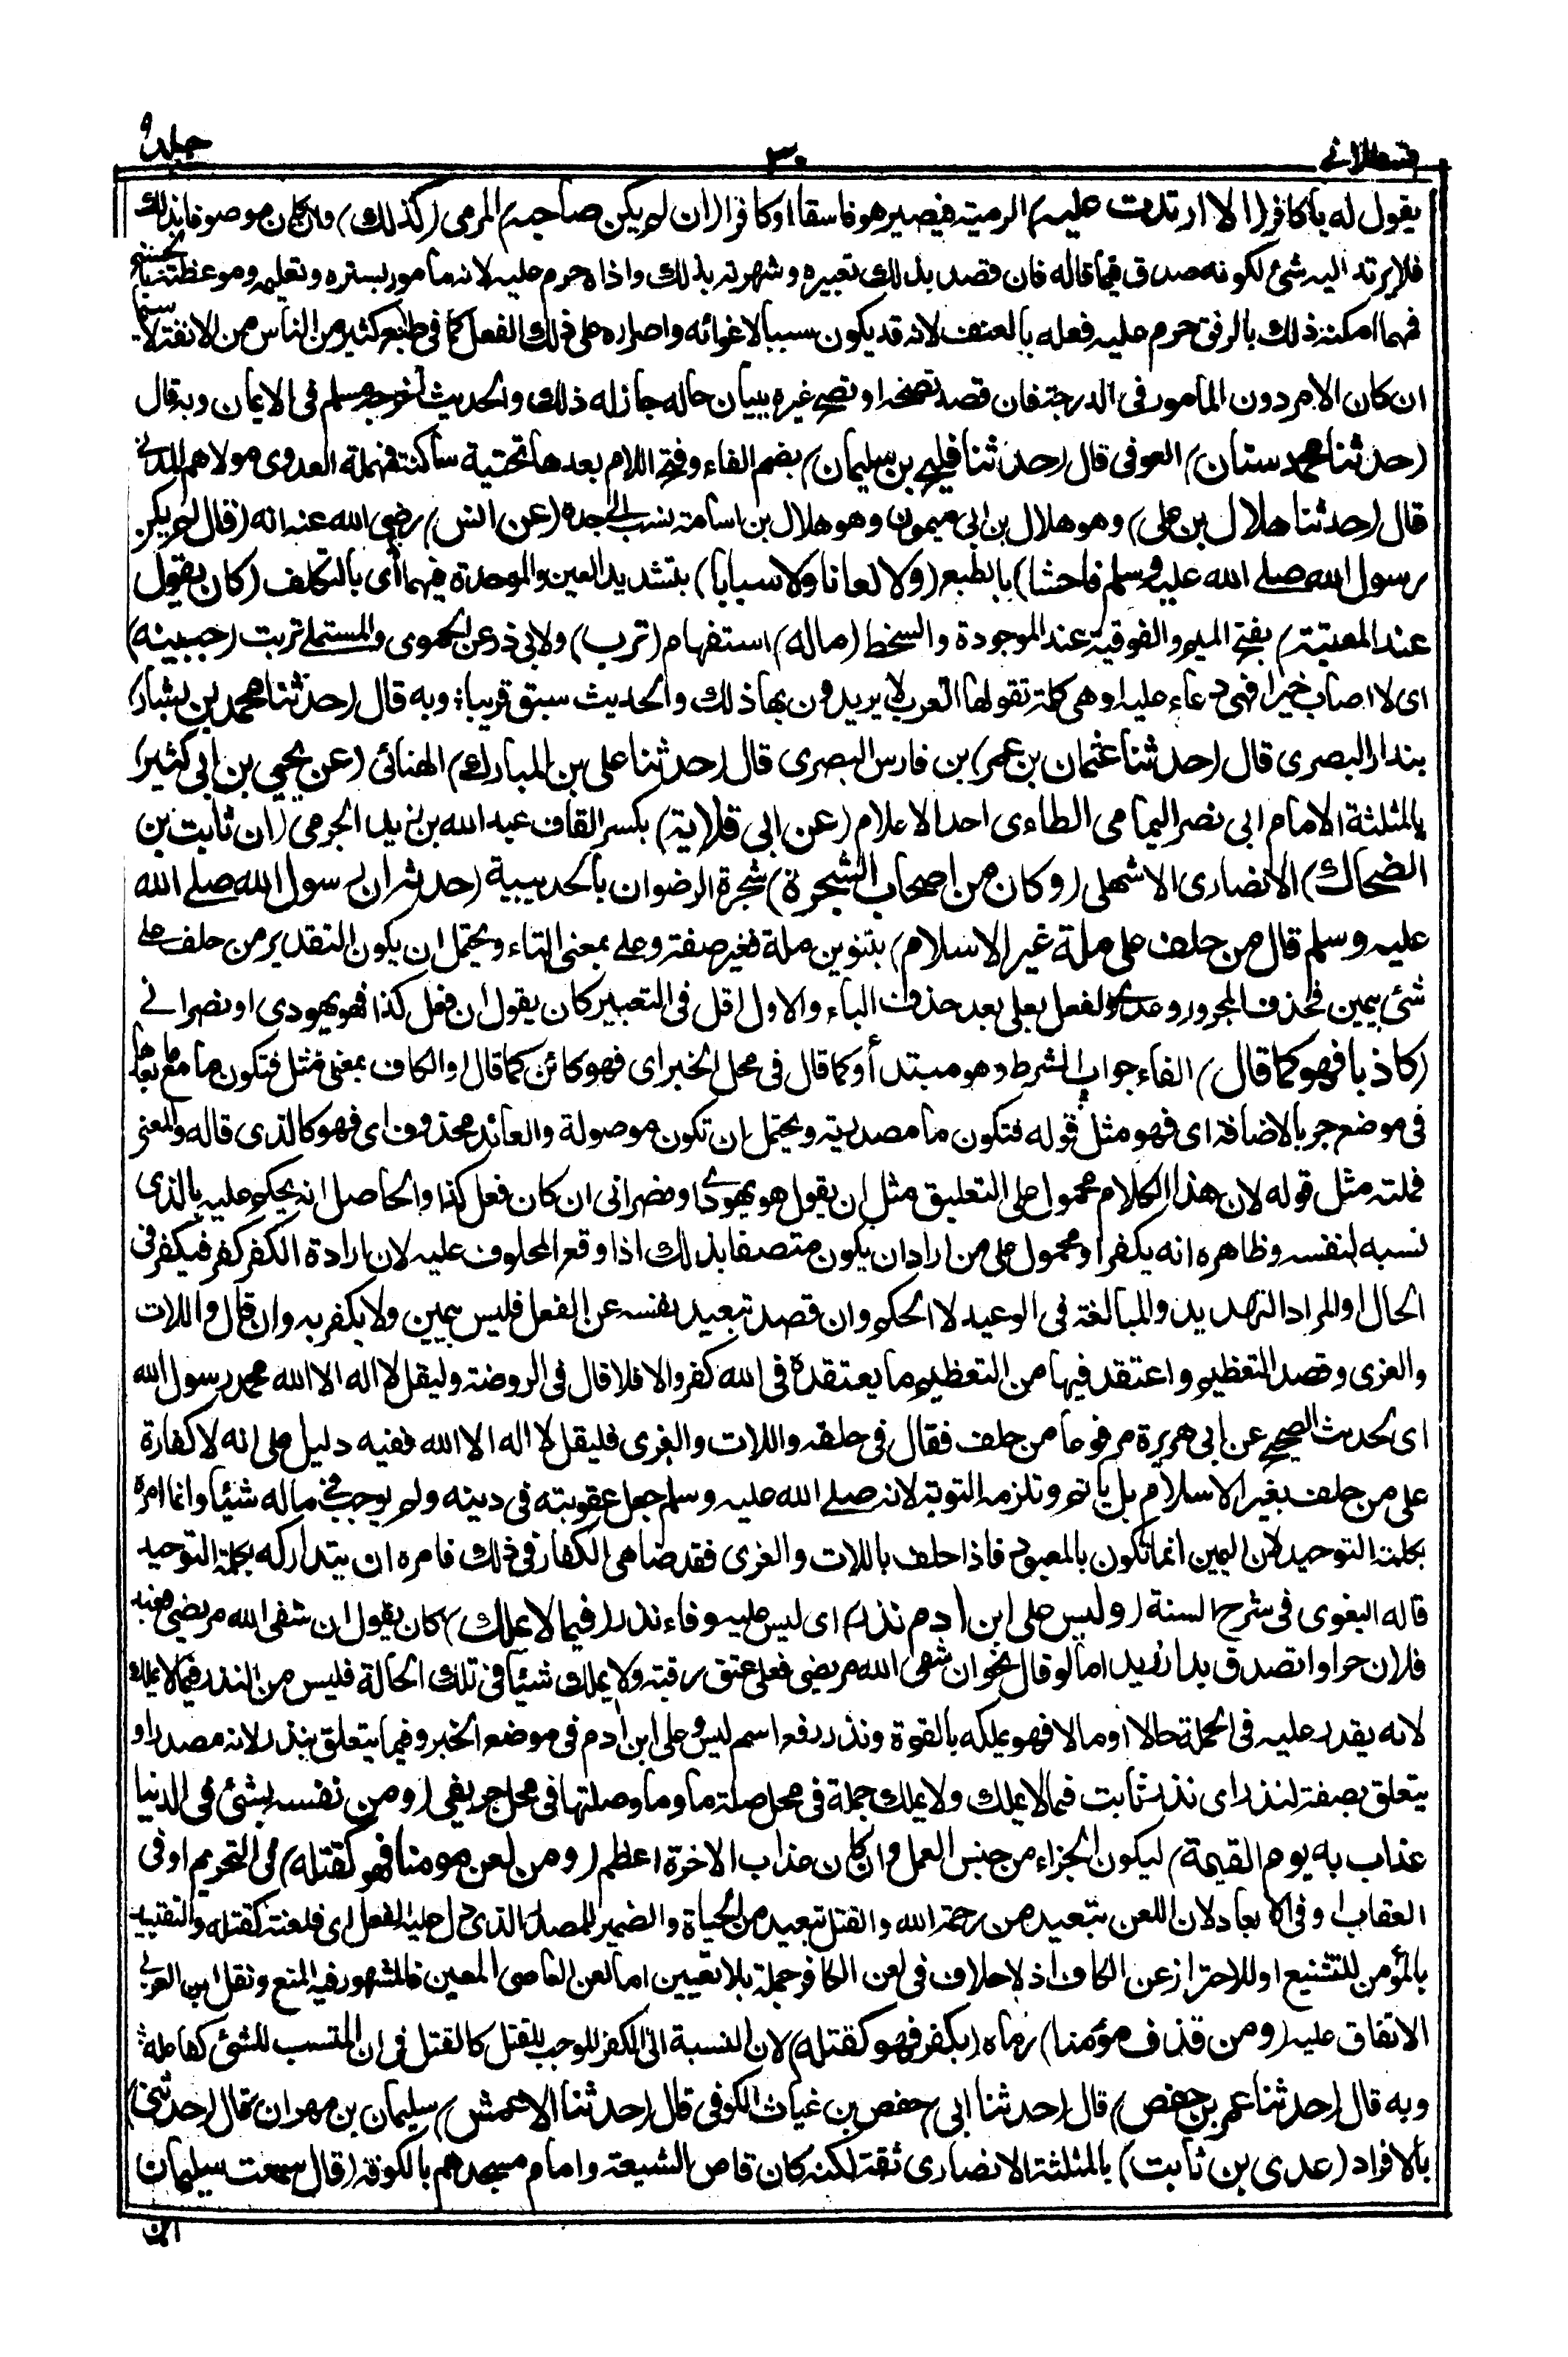 قسطلانے ٣٠ جلد ٩
يقول له يا كافر (الا ارتدت عليه) الرمية فيصير هو فاسقا او كافرا (ان لم يكن صاحبه) المرمى (كذلك) وان كان موصوفا بذلك
فلا يرتد اليه شئ لكونه صدق فيما قاله فان قصد بذلك تعييره وشهرته بذلك واذاه حرم عليه لانه مأمور بستره وتعليمه وموعظته بالحسنى
فمهما امكنه ذلك بالرفق حرم عليه فعله بالعنف لانه قد يكون سببا لاغوائه واصراره على ذلك الفعل كما فى طبع كثير من الناس من الانفة لا سيما
ان كان الامر دون المأمور فى الدرجة فان قصد نصحه او نصح غيره ببيان حاله جاز له ذلك والحديث اخرجه مسلم فى الايمان وبه قال
(حدثنا محمد بن سنان) العوقى قال (حدثنا فليح بن سليمان) بضم الفاء وفتح اللام بعدها تحتية ساكنة فمهملة العدوى مولاهم المدنے
قال (حدثنا هلال بن على) وهو هلال بن ابى ميمون وهو هلال بن اسامة نسب الى جده (عن انس) رضى الله عنه انه (قال لم يكن
رسول الله صلے الله عليه وسلم فاحشا) بالطبع (ولا لعانا ولا سبابا) بتشديد العين والموحدة فيهما أى بالتكلف (كان يقول
عند المعتبة) بفتح الميم والفوقية عند الموجدة والسخط (ماله) استفهام (ترب) ولابى ذر عن الحموى والمستملے تربت (جبينه)
اى لا اصاب خيرا فهى دعاء عليه او هى كلمة تقولها العرب لا يريدون بها ذلك والحديث سبق قريبا؛ وبه قال (حدثنا محمد بن بشار)
بندار البصرى قال (حدثنا عثمان بن عمر) بن فارس البصرى قال (حدثنا على بن المبارك) الهنائى (عن يحيى بن ابى كثير)
بالمثلثة الامام ابى نصر اليمامى الطاءى احد الاعلام (عن ابى قلابة) بكسر القاف عبد الله بن زيد الجرمى (ان ثابت بن
الضحاك) الانصارى الاشهلى (وكان من اصحاب الشجرة) شجرة الرضوان بالحديبية (حدثه ان رسول الله صلے الله
عليه وسلم قال من حلف على ملة غير الاسلام) بتنوين ملة فغير صفته وعلے بمعنى الباء ويحتمل ان يكون التقدير من حلف علے
شئ بيمين فحذف المجرور وعدى الفعل بعلى بعد حذف الباء والاول اقل فى التعبير كان يقول ان فعل كذا فهو يهودى او نصرانے
(كاذبا فهو كما قال) الفاء جواب الشرط وهو مبتدأ وكما قال فى محل الخبر اى فهو كائن كما قال او الكاف بمعنى مثل فتكون ما مع ما بعدها
فى موضع جر بالاضافة اى فهو مثل قوله فتكون ما مصدرية ويحتمل ان تكون موصولة والعائد محذوف اى فهو كالذى قاله والمعنى
فملته مثل قوله لان هذا الكلام محمول على التعليق مثل ان يقول هو يهودى او نصرانى ان كان فعل كذا والحاصل انه يحكم عليه بالذى
نسبه لنفسه وظاهره انه يكفر او محمول على من اراد ان يكون متصفا بذلك اذا وقع المحلوف عليه لان ارادة الكفر كفر فيكفر فى
الحال او المراد التهديد والمبالغة فى الوعيد لا الحكم وان قصد تبعيد نفسه عن الفعل فليس بيمين ولا يكفر به وان قال واللات
والعزى وقصد التعظيم واعتقد فيها من التعظيم ما يعتقده فى الله كفر والا فلا قال فى الروضة وليقل لا اله الا الله محمد رسول الله
اى لحديث الصحيح عن ابى هريرة مرفوعا من حلف فقال فى حلفه واللات والعزى فليقل لا اله الا الله ففيه دليل على انه لا كفارة
على من حلف بغير الاسلام بل ياثم وتلزمه التوبة لانه صلے الله عليه وسلم جعل عقوبته فى دينه ولم يوجب فى ماله شيئا وانما امره
بكلمة التوحيد لان اليمين انما تكون بالمعبود فاذا حلف باللات والعزى فقد ضاهى الكفار فى ذلك فامره ان يتداركه بكلمة التوحيد
قاله البغوى فى شرح السنة (وليس على ابن ادم نذر) اى ليس عليه وفاء نذر (فيما لا يملك) كان يقول ان شفى الله مريضى فعبد
فلان حر او اتصدق بدار زيد اما لو قال نحو ان شفى الله مريضى فعلى عتق رقبة ولا يملك شيئا فى تلك الحالة فليس من النذر فيما لا يملك
لانه يقدر عليه فى الجملة حالا او مالا فهو يملكه بالقوة ونذر رفع اسم ليس وعلى ابن ادم فى موضع الخبر وفيما يتعلق بنذر لانه مصدر او
يتعلق بصفة لنذر اى نذر ثابت فيما لا يملك ولا يملك جملة فى محل صلة ما وما وصلتها فى محل جر بفى (ومن نفسه بشئ فى الدنيا
عذاب به يوم القيمة) ليكون الجزاء من جنس العمل وان كان عذاب الاخرة اعظم (ومن لعن مومنا فهو كقتله) فى التحريم او فى
العقاب او فى الابعاد لان اللعن تبعيد من رحمة الله والقتل تبعيد من الحياة والضمير للمصدر الذى دل عليه الفعل اى فلعنته كقتله والتقييد
بالمؤمن للتشنيع او للاحتراز عن الكافر اذ لا خلاف فى لعن الكافر جملة بلا تعيين اما لعن العاصى المعين فالمشهور فيه المنع ونقل ابن العربے
الاتفاق عليه (ومن قذف مؤمنا) رماه (بكفر فهو كقتله) لان النسبة الى الكفر الموجب للقتل كالقتل فى ان المتسبب للشئ كفاعله؛
وبه قال (حدثنا عمر بن حفص) قال (حدثنا ابى) حفص بن غياث الكوفى قال (حدثنا الاعمش) سليمان بن مهران قال (حدثنى)
بالافراد (عدى بن ثابت) بالمثلثة الانصارى ثقة لكنه كان قاص الشيعة وامام مسجدهم بالكوفة (قال سمعت سليمان
ابن